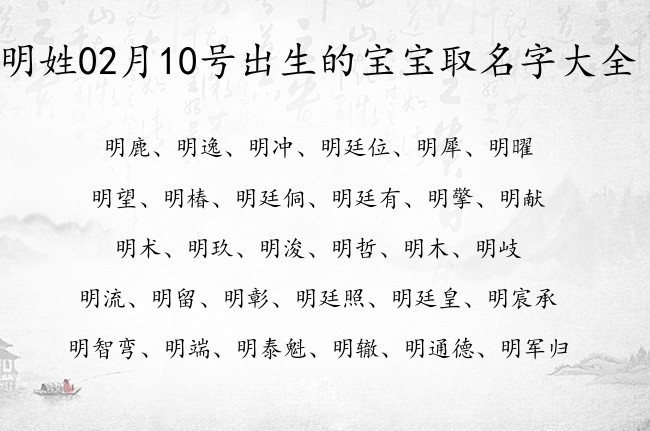 明姓02月10号出生的宝宝取名字大全
明鹿、明逸、明冲、明廷位、明犀、明曜
明望、明椿、明廷侗、明廷有、明擎、明献
明术、明玖、明浚、明哲、明木、明歧
明流、明留、明彰、明廷照、明廷皇、明宸承
明智弯、明端、明泰魁、明辙、明通德、明军归